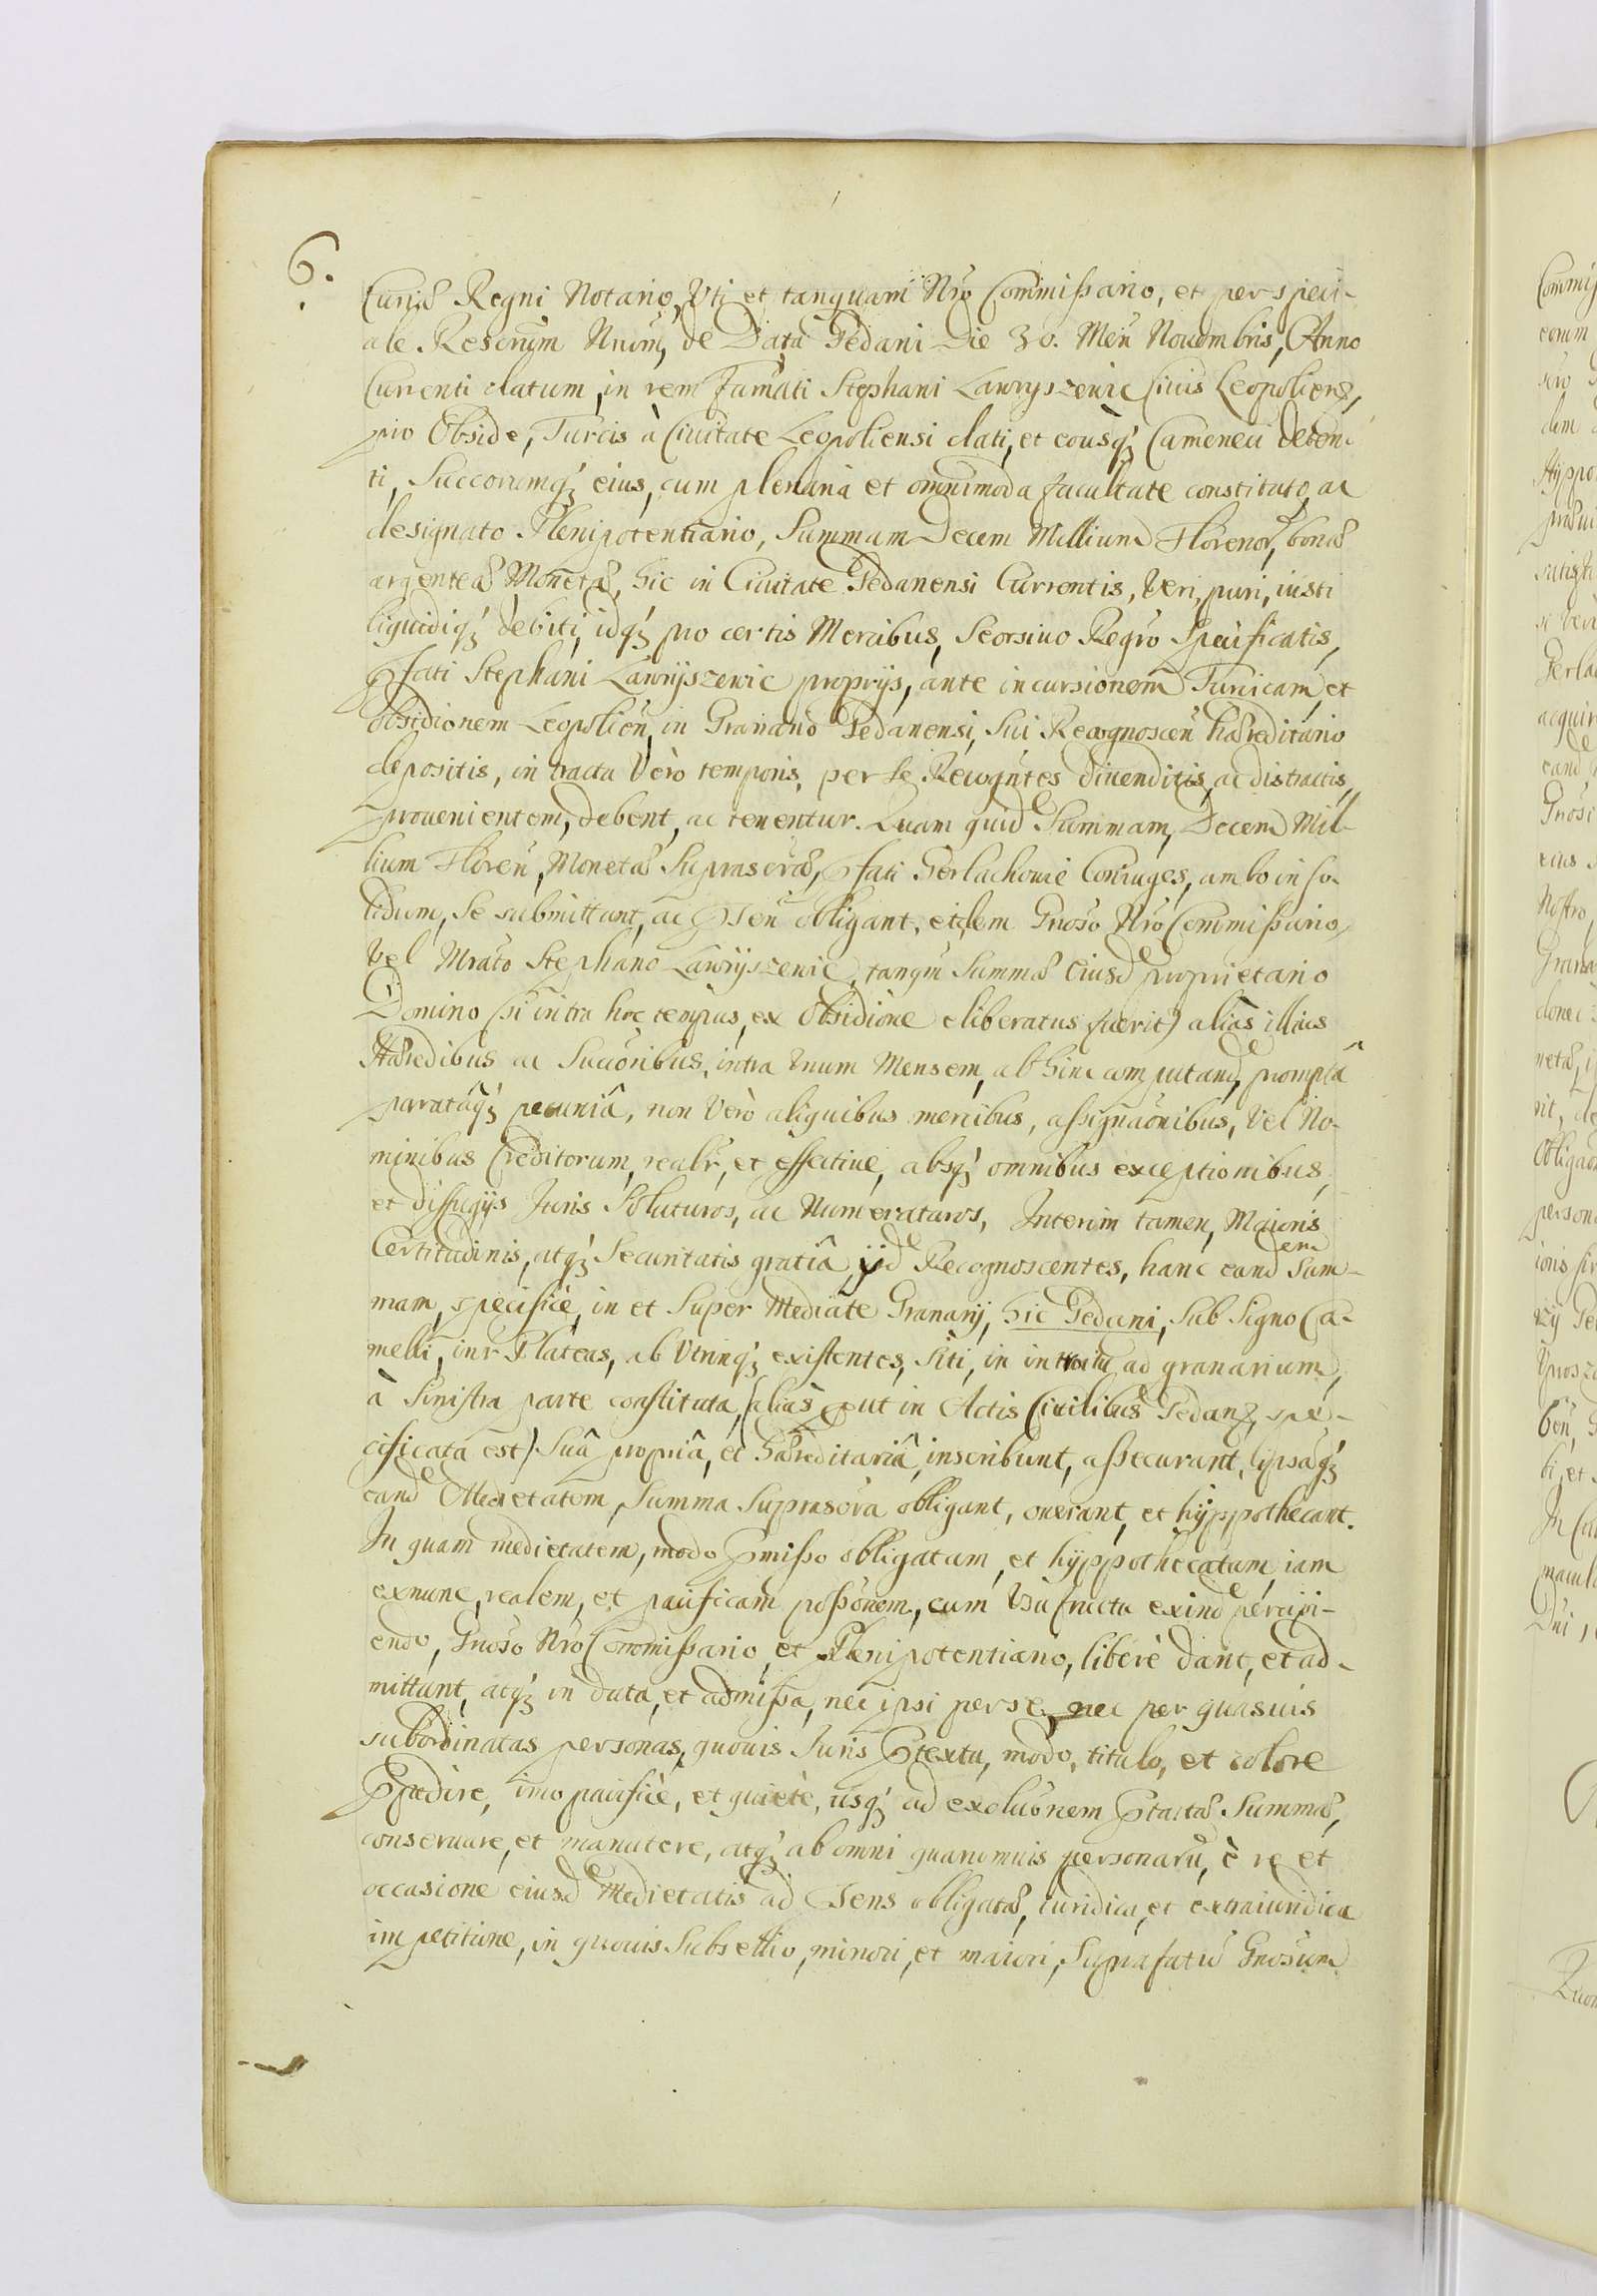 6.
Curiæ Regni Notario, Vti et tanquam Nro Commissario, et per speci-
ale Rescrum Nrum, de Data Gedani Die 30. Men Nouembris, Anno
Currenti datum, in rem Famati Stephani Lawryszewic Ciuis Leopolien,
pro Obside, Turcis à Ciuitate Leopoliensi dati, et eousq Cameneci deten-
ti, Succorumq eius, cum plenaria et omnimoda facultate constituto, ac
designato Plenipotentiario, Summam Decem Millium Florenor, bonæ
argenteæ Monetæ, hic in Ciuitate Gedanensi Currentis, Veri, puri, iusti
liquidiq debiti, idq pro certis Mercibus, Seorsiuo Regro Specificatis,
Pfati Stephani Lawryszewic proprijs, ante incursionem Turcicam, et
obsidionem Leopolien, in Granario Gedanensi, Sui Recognoscen hæreditario
depositis, in tractu Vèro temporis, per se Recogntes diuenditis, ac distractis,
prouenientem, debent, ac tenentur. Quam quid Summam, Decem Mil-
lium Floren, Monetæ Suprascræ, Pfati Gerlachouie Coniuges, ambo in so-
lidum, se submittant, ac Psen obligant, eidem Gnoso Nro Commissario,
Vel Mrato Stephano Lawryszewic, tanqm Summæ Eiusd proprietario
Domino (si intra hoc tempus, ex Obsidione eliberatus fuerit) alias illius
Hæredibus ac Succoribus, intra Vnum Mensem, ab hinc computand, promptâ
paratâq pecuniâ, non Vèrò aliquibus mercibus, assignaonibus, Vel No-
minibus Creditorum, realr, et effectiue, absq omnibus exceptionibus,
et diffugijs Iuris Soluturos, ac Numeraturos, Interim tamen, Maioris
Certitudinis, atq Securitatis gratiâ, ijd Recognoscentes, hanc eandem Sum-
mam, specificè, in et Super Medietate Granarij, hic Gedani, Sub Signo Ca-
melli, inr Plateas, ab Vtrinq existentes, siti, in introitu ad granarium,
à Sinistra parte constituta, (aliàs put in Actis Ciuilibus Gedan, spe-
cificata est) Suâ propriâ, et hæreditariâ, inscribunt, assecurant, ipsaq
eand Medietatem, Summa Suprascra obligant, onerant, et hyppothecant.
In quam medietatem, modo Pmisso obligatam, et hyppothecatam, iam
exnunc, realem, et pacificam possonem, cum Vsufructu exind percipi-
endo, Gnoso Nro Commissario, et Plenipotentiario, liberè dant, et ad-
mittunt, atq in data, et admissa, nec ipsi per se, nec per quasuis
subordinatas personas, quouis Iuris Ptextu, modo, titulo, et colore
Ppedire, imo pacificè, et quietè, usq ad exolutionem Ptactæ Summæ,
conseruare, et manutere, atq ab omni quarumuis personaru, è re et
occasione eiusd Medietatis ad Psens obligatæ, iuridica, et extraiuridica
impetitione, in quouis Subsellio, minori, et maiori, Suprafatu Gnosum